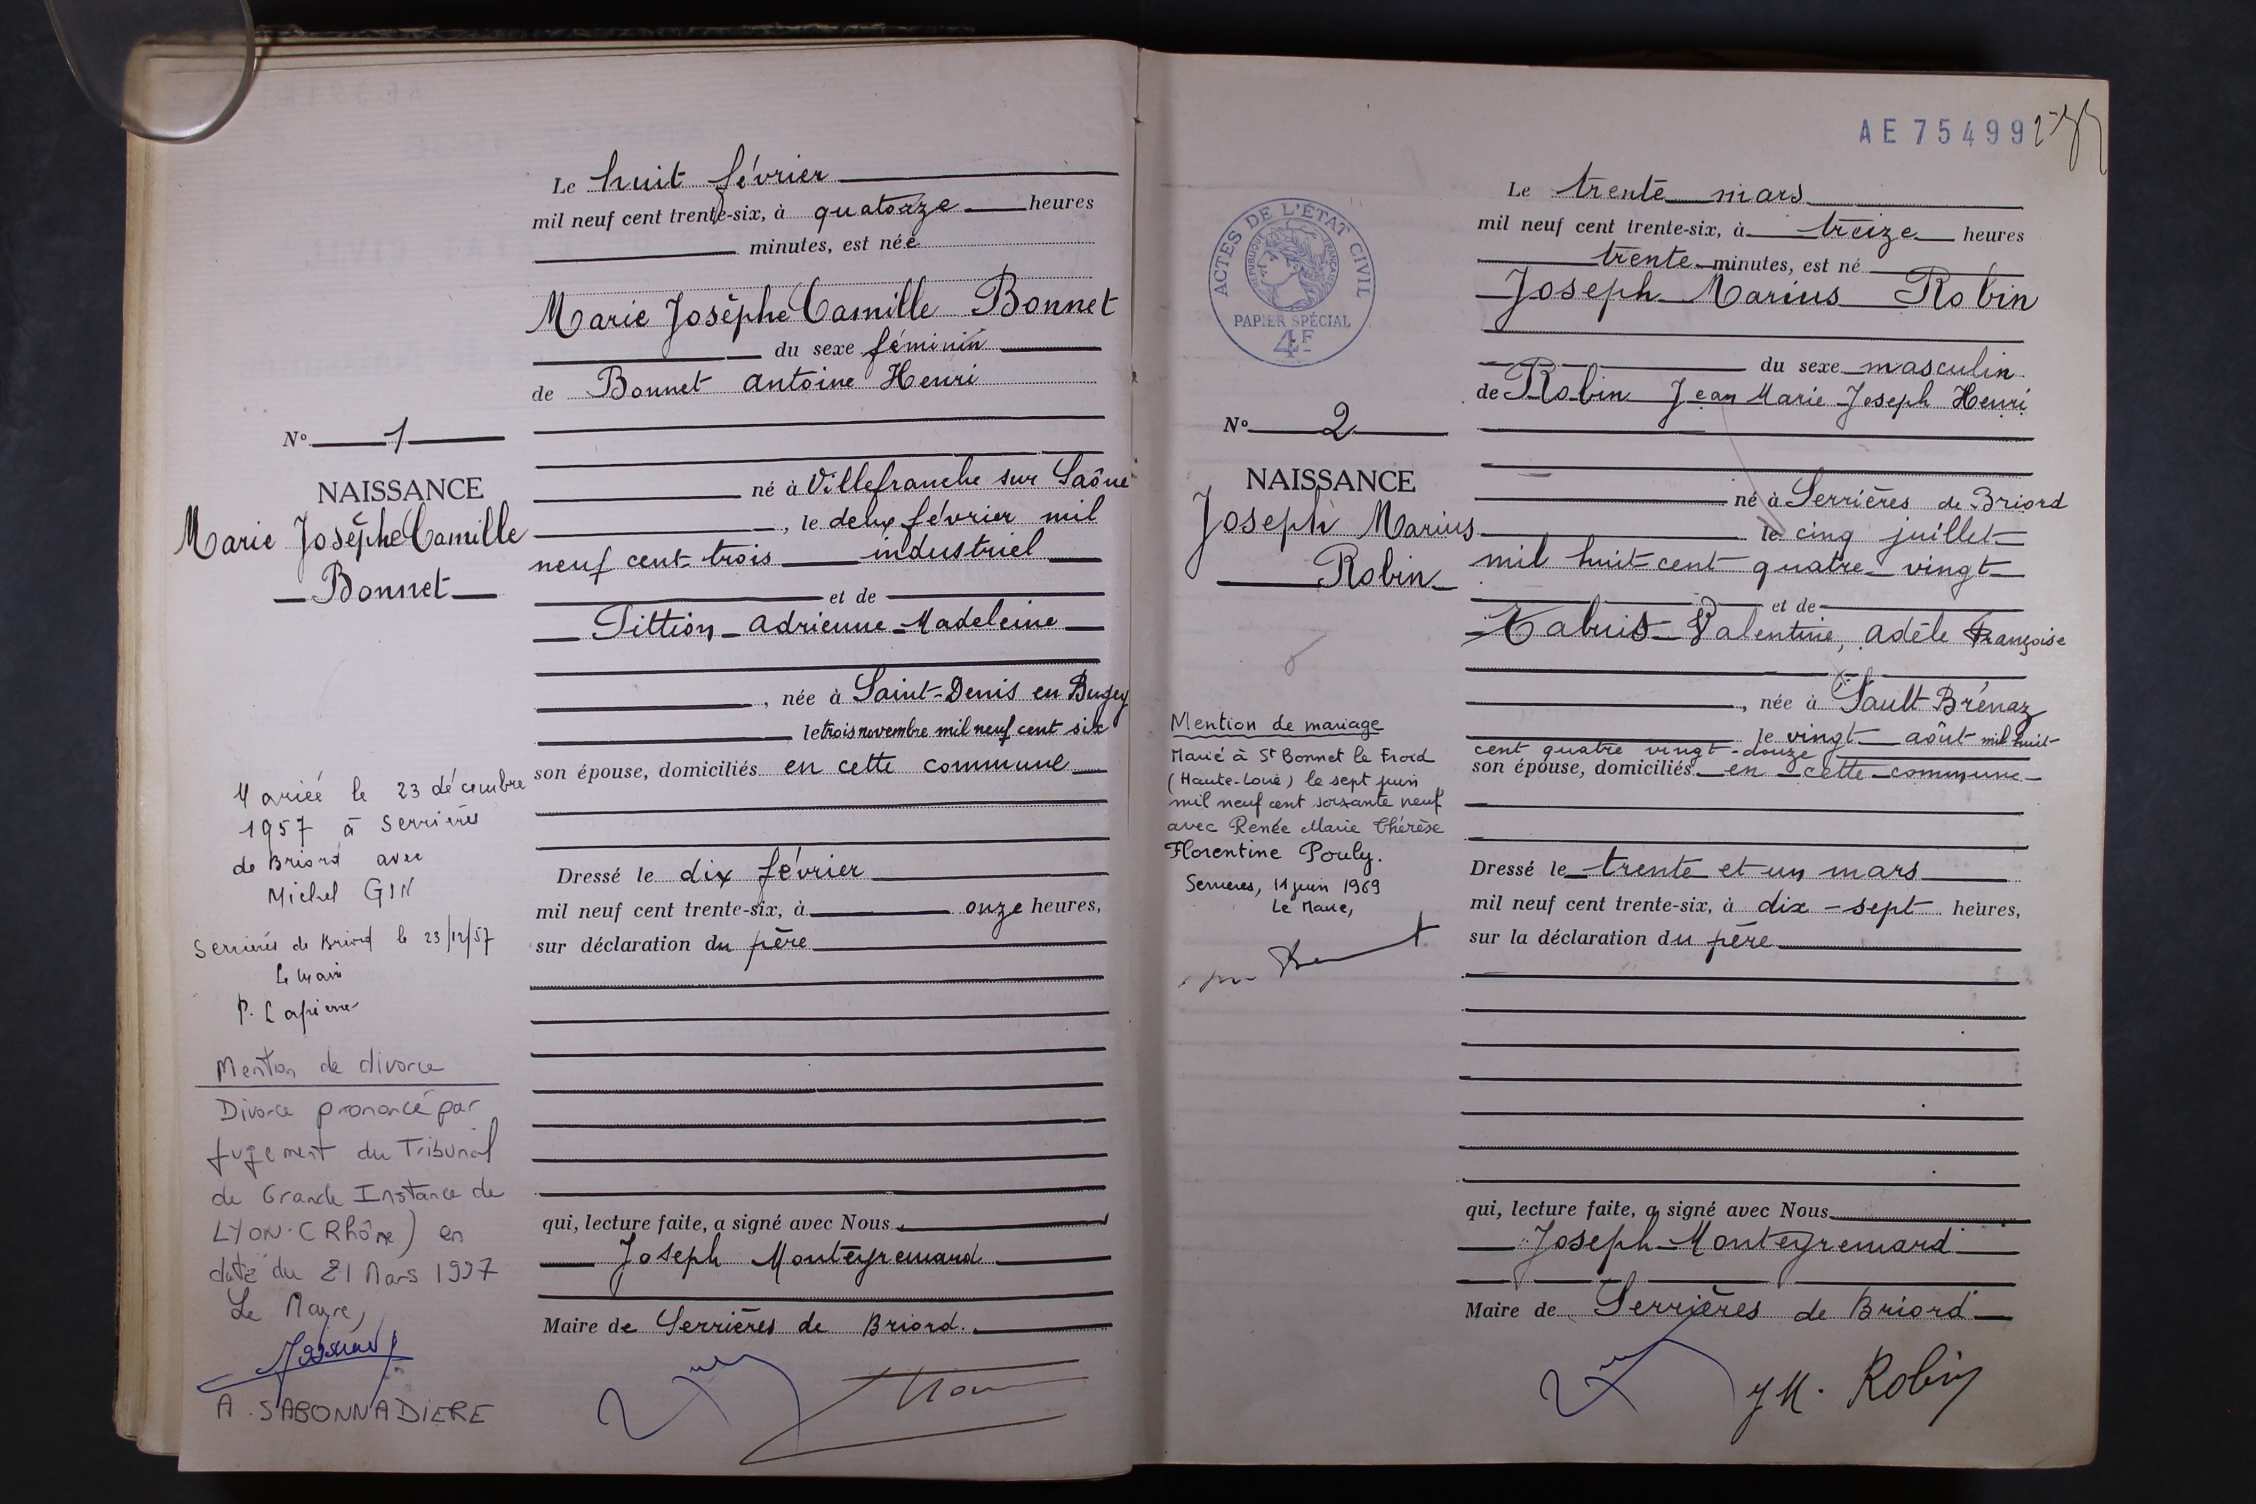 Le huit février
mil neuf cent trente-six, à quatorze heures
minutes, est née
Marie Josèphe Camille Bonnet
du sexe féminin
de Bonnet Antoine Henri
N° 1
NAISSANCE
Marie Josèphe Camille
Bonnet
né à Villefranche sur Saône
, le deux février mil
neuf cent trois industriel
et de
Pittion Adrienne Madeleine
, née à Saint-Denis en Bugey
le trois novembre mil neuf cent six
son épouse, domiciliés en cette commune
Mariée le 23 décembre
1957 à Serrières
de Briord avec
Michel GIN
Serrières de Briord le 23/12/57
Le Maire
P. Lapierre
Dressé le dix février
mil neuf cent trente-six, à onze heures,
sur déclaration du père
Mention de divorce
Divorce prononcé par
jugement du Tribunal
de Grande Instance de
LYON (Rhône) en
date du 21 Mars 1997
Le Maire,
A. SABONNADIERE
qui, lecture faite, a signé avec Nous
Joseph Monteyremard
Maire de Serrières de Briord.
AE 75499
ACTES DE L'ÉTAT CIVIL
RÉPUBLIQUE FRANÇAISE
PAPIER SPÉCIAL
4F
Le trente mars
mil neuf cent trente-six, à treize heures
trente minutes, est né
Joseph Marius Robin
du sexe masculin
de Robin Jean Marie Joseph Henri
N° 2
NAISSANCE
Joseph Marius
Robin
né à Serrières de Briord
le cinq juillet
mil huit cent quatre-vingt
et de
Valentine, Adèle Françoise
, née à Sault-Brénaz
le vingt août mil huit
cent quatre vingt-douze
son épouse, domiciliés en cette commune
Mention de mariage
Marié à St Bonnet le Froid
(Haute-Loire) le sept juin
mil neuf cent soixante neuf
avec Renée Marie Thérèse
Florentine Pouly.
Serrières, 11 juin 1969
Le Maire,
Dressé le trente et un mars
mil neuf cent trente-six, à dix-sept heures,
sur la déclaration du père
qui, lecture faite, a signé avec Nous
Joseph Monteyremard
Maire de Serrières de Briord
JM. Robin